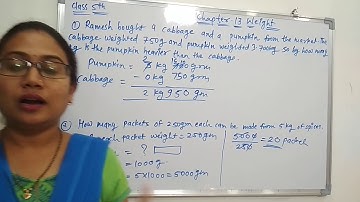 Class 5th
Chapter 13 Weight
① Ramesh bought a cabbage and a pumpkin from the market. The
cabbage weighted 750g and pumpkin weighted 3.700kg. So by how many
kg is the pumpkin heavier than the cabbage.
Pumpkin = 3 kg 700 gm
Cabbage = - 0 kg 750 gm
2 kg 950 gm
② How many packets of 250gm each can be made from 5 kg of spices.
each packet weight = 250gm
= ?
= 1000g
= 5×1000 = 5000gm
5000/250 = 20 packet